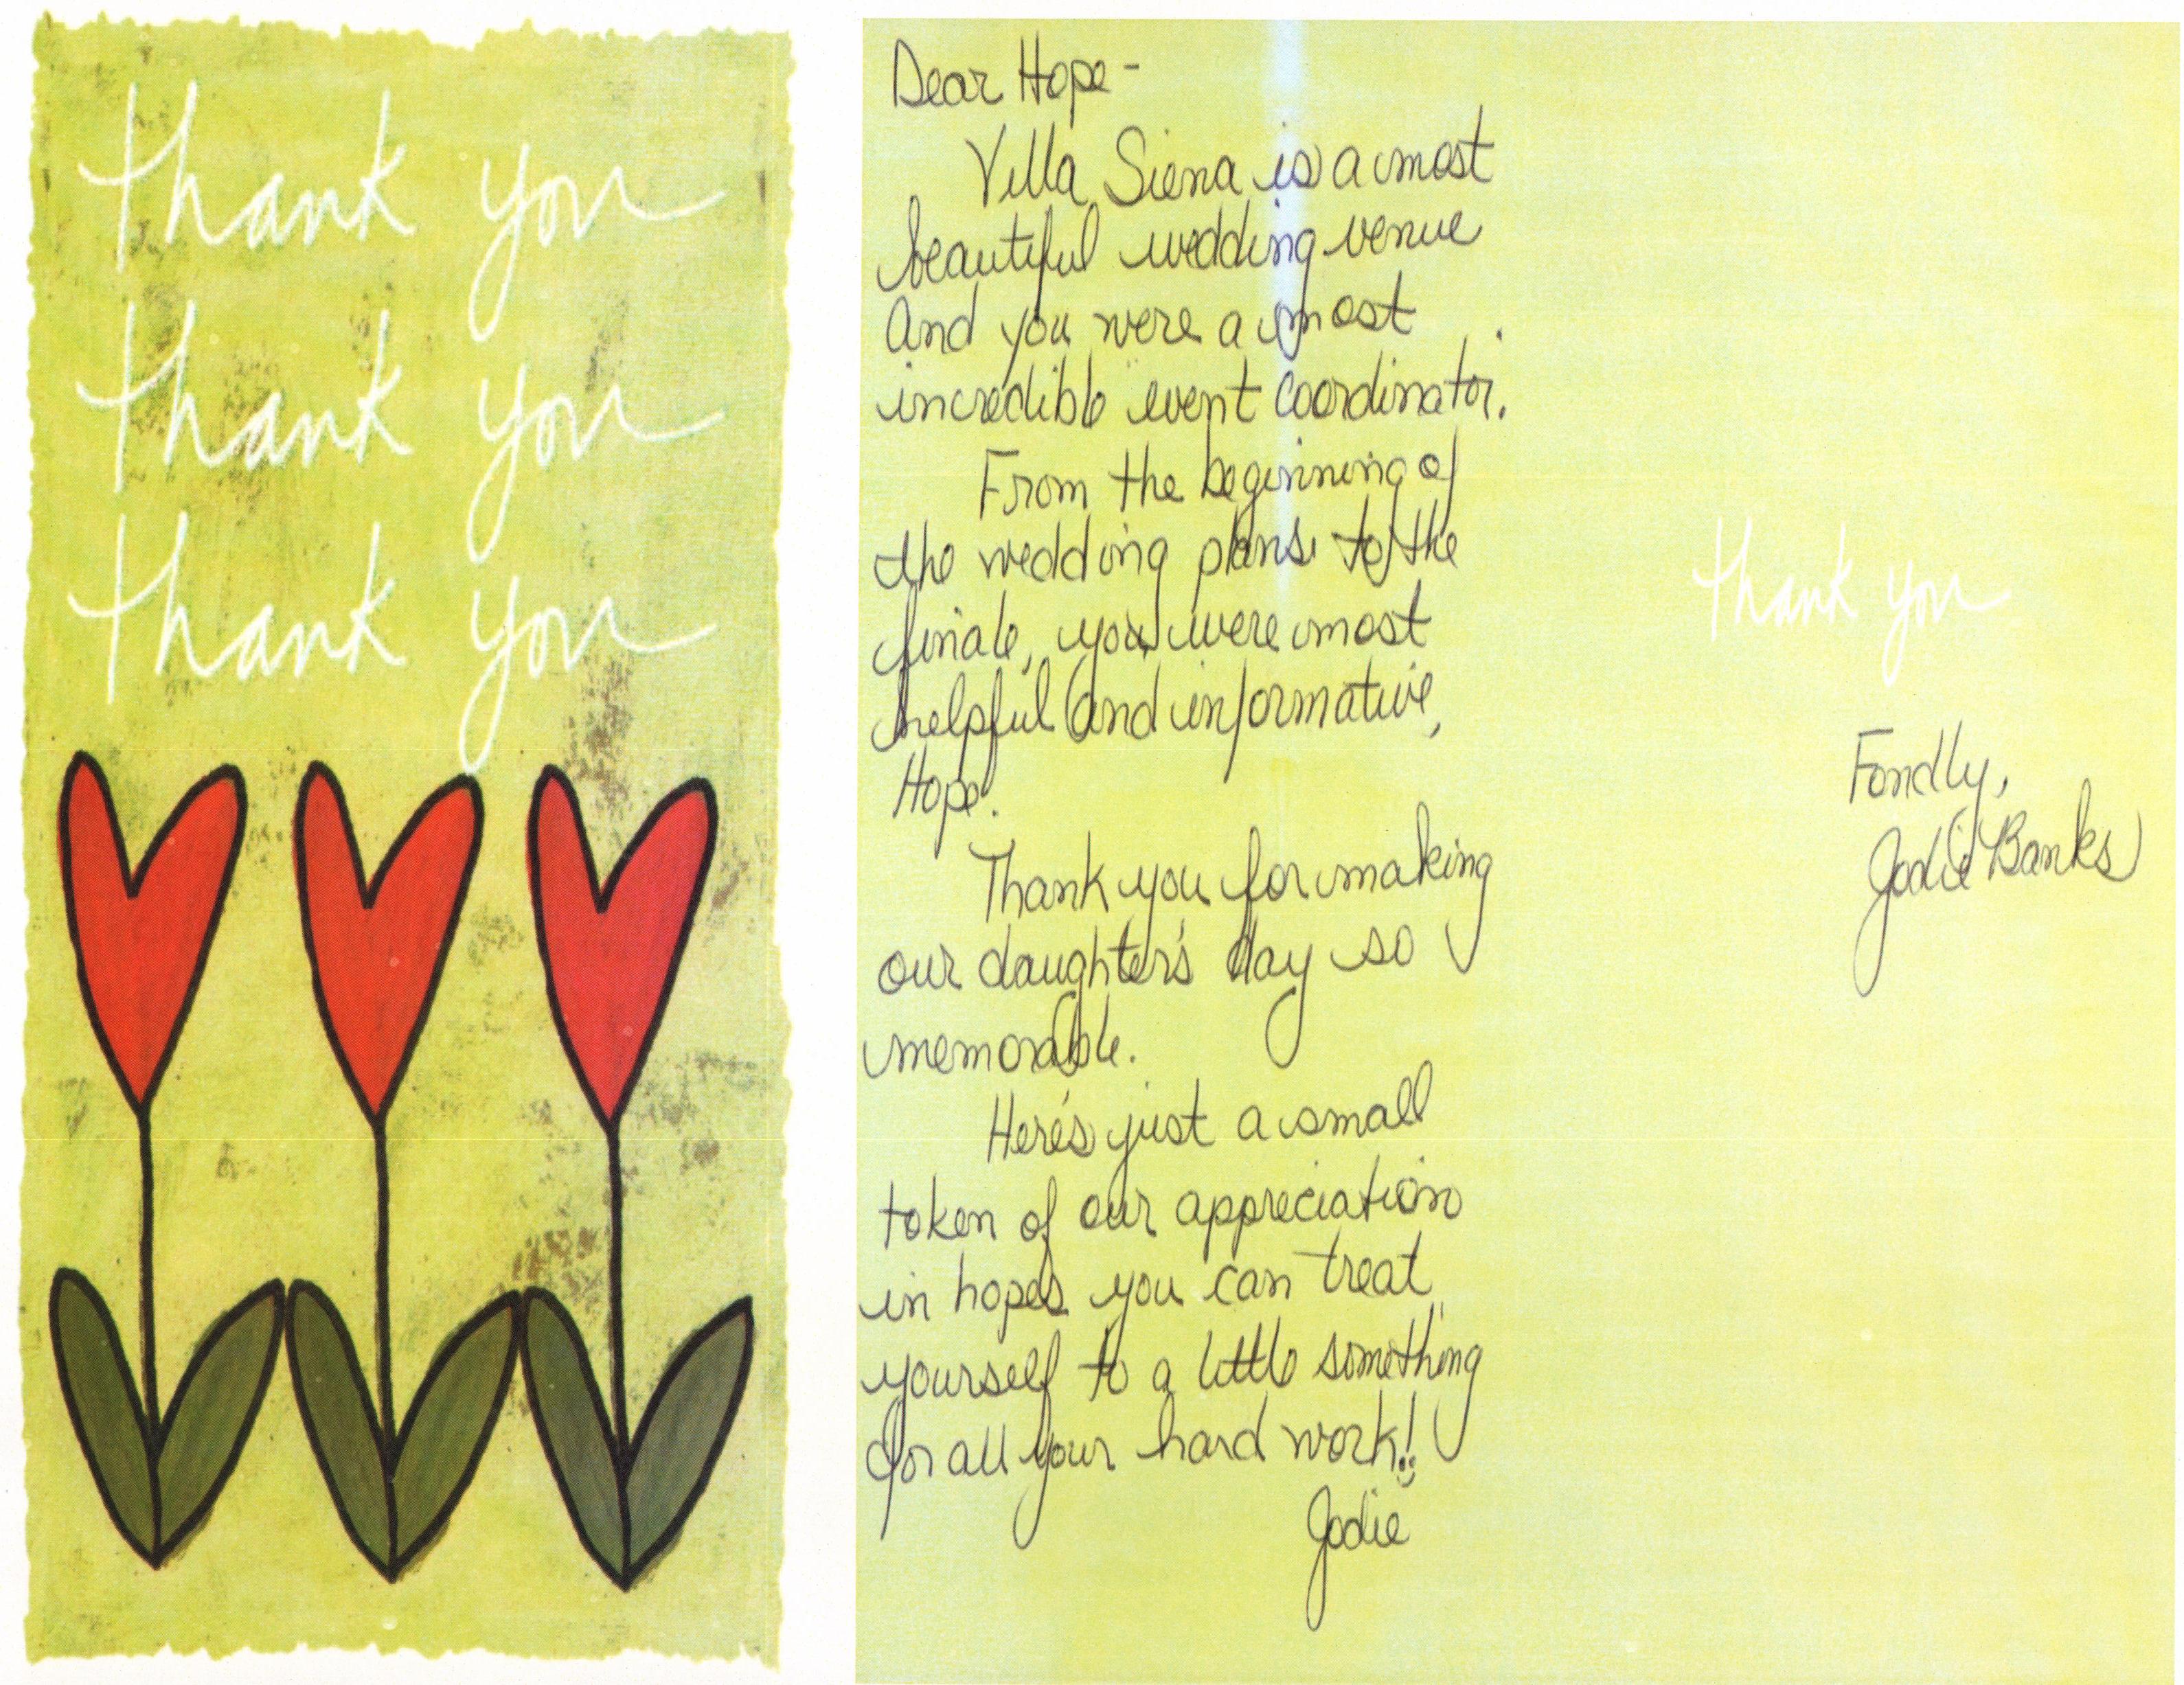 thank you
thank you
thank you
Dear Hope -
Villa Siena is a most
beautiful wedding venue
and you were a most
incredible event coordinator.
From the beginning of
the wedding plans to the
finale, you were most
helpful and informative,
Hope.
Thank you for making
our daughter's day so
memorable.
Here's just a small
token of our appreciation
in hopes you can treat
yourself to a little something
for all your hard work!!
Jodie
thank you
Fondly,
Jodie Banks